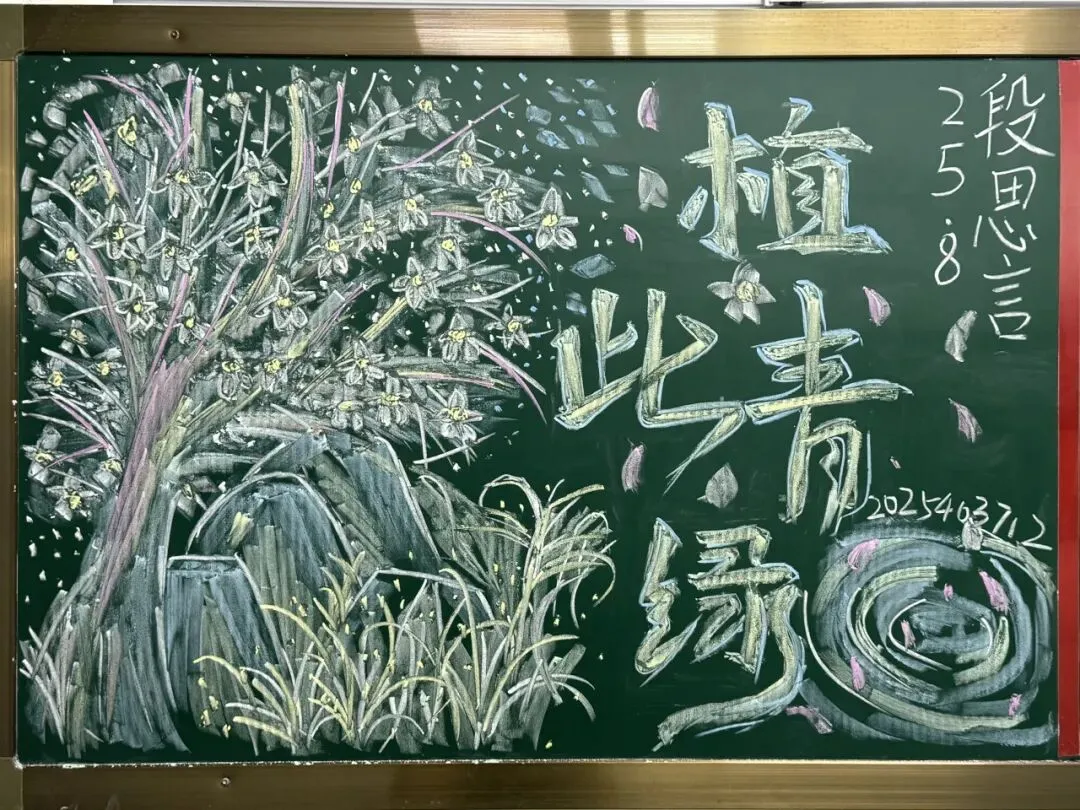 植
此青
绿
段思言
25.8
2025403712